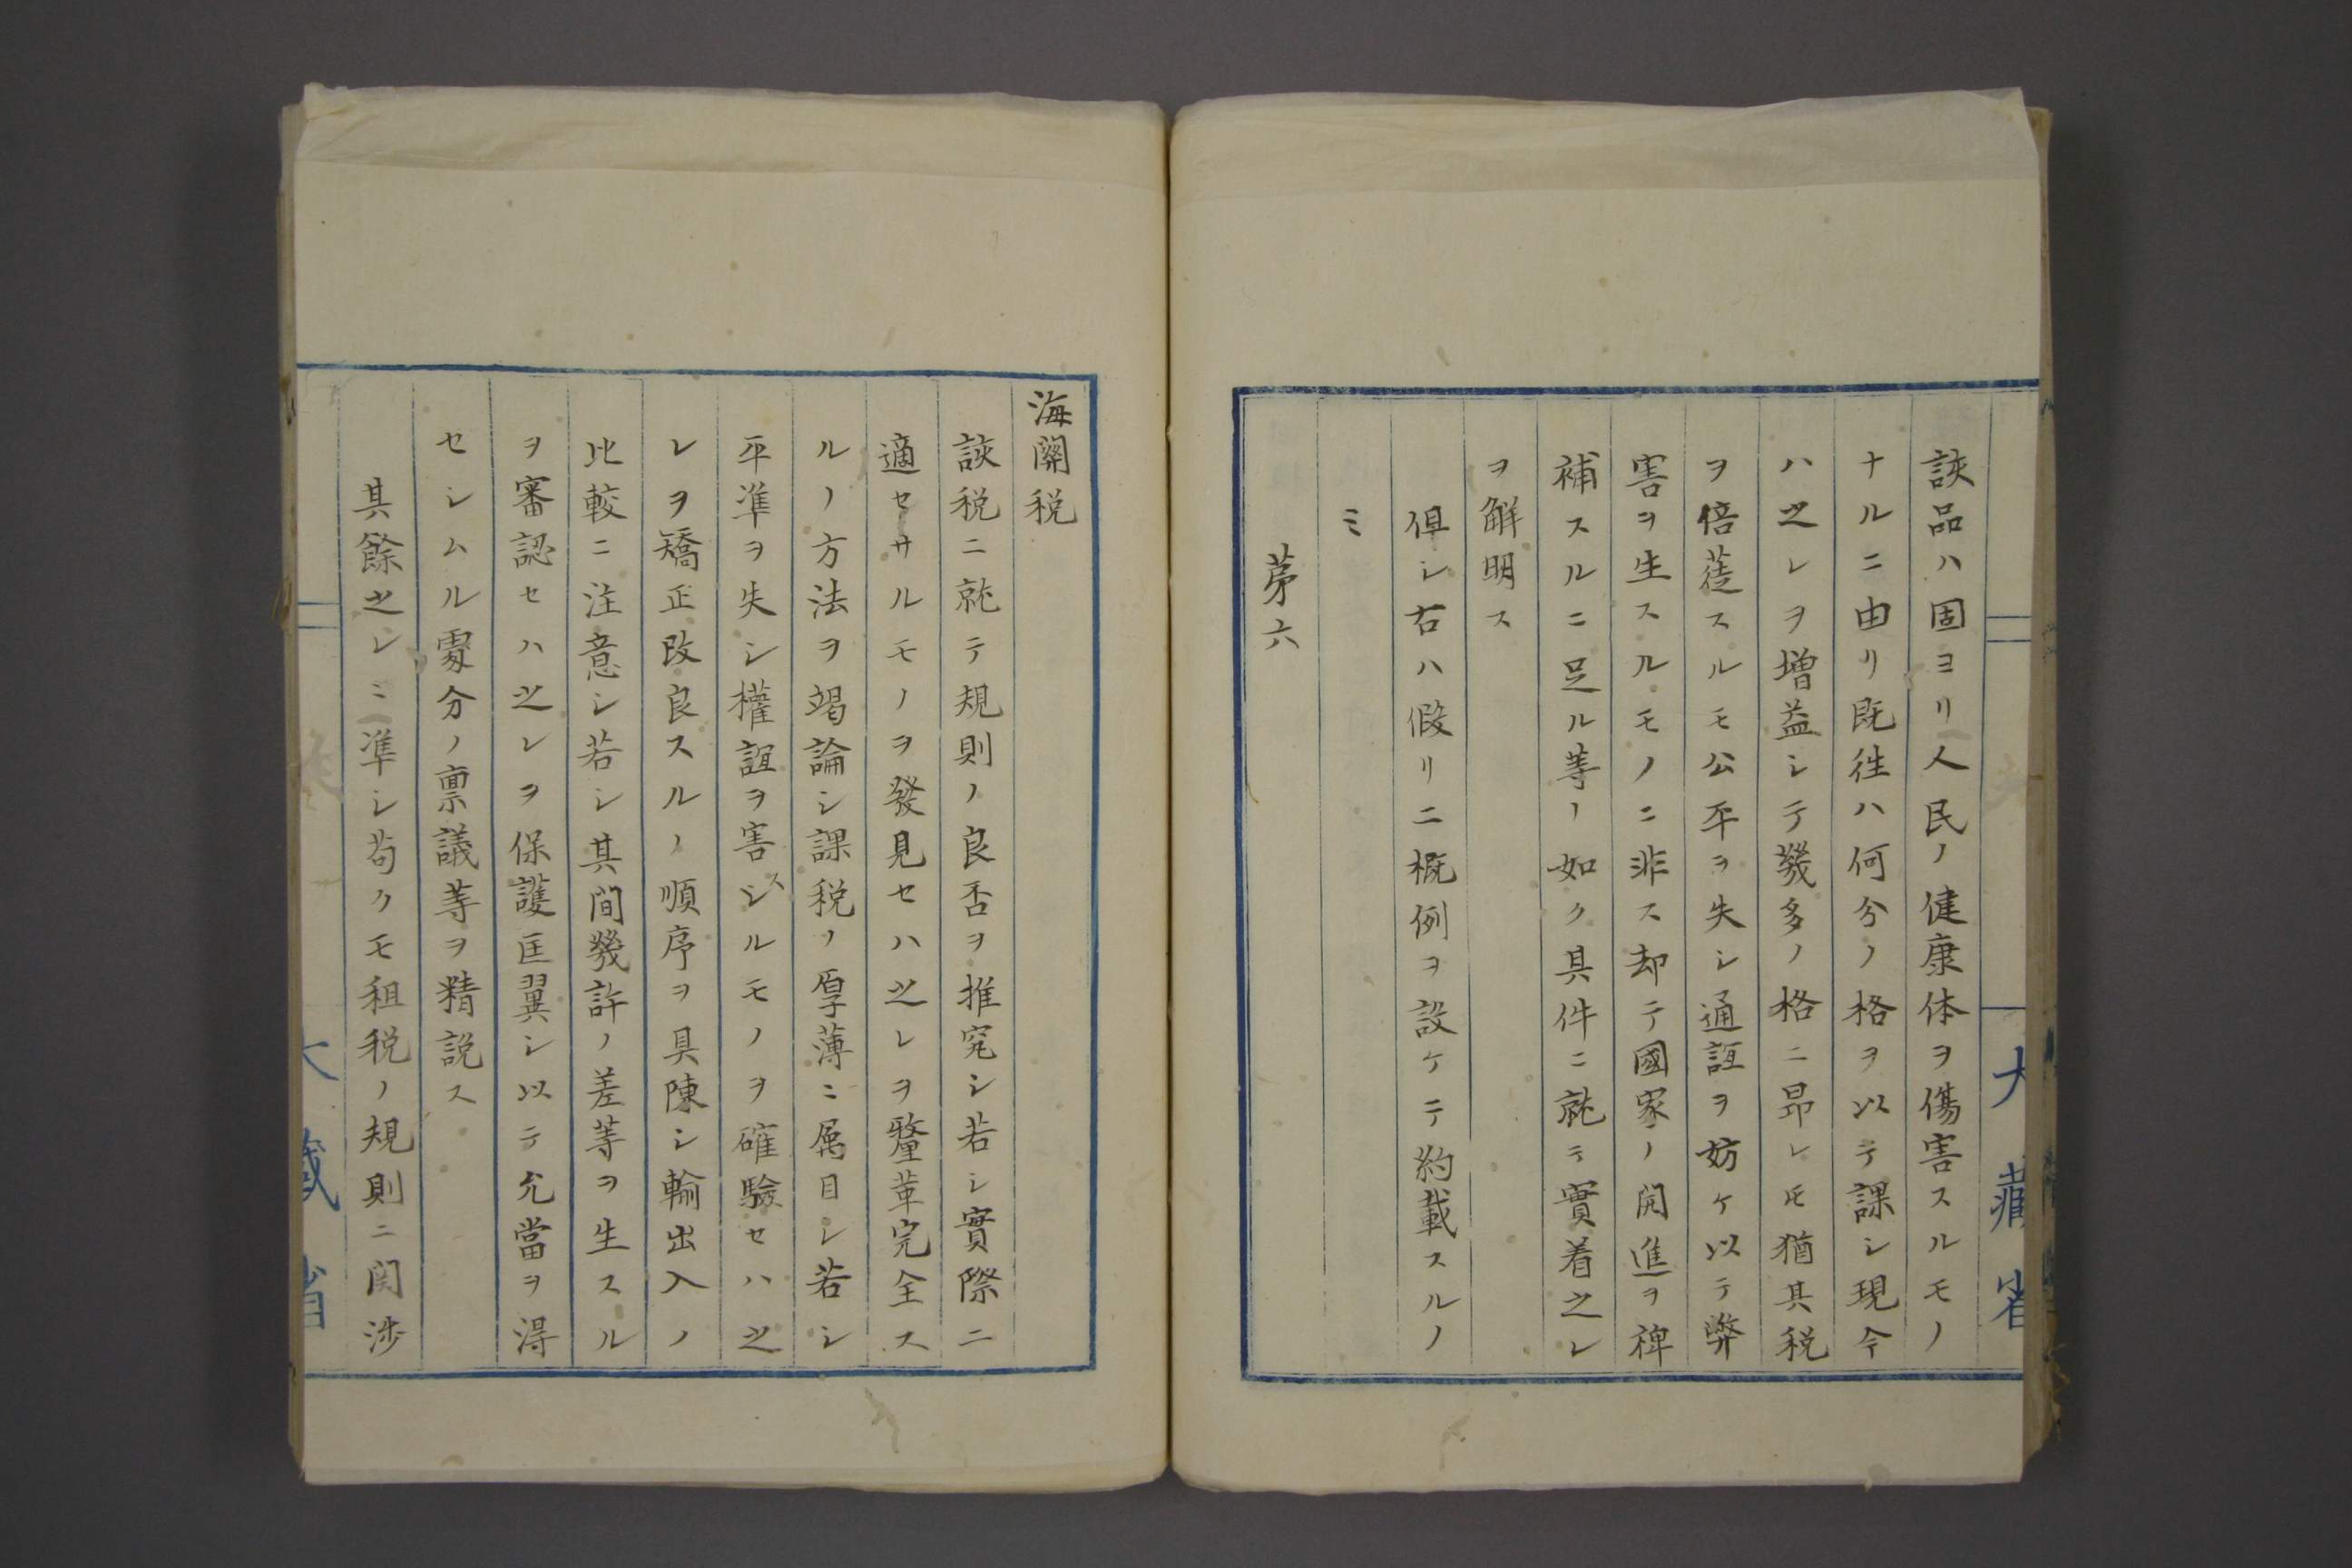 該品ハ固ヨリ人民ノ健康体ヲ傷害スルモノ
ナルニ由リ既徃ハ何分ノ格ヲ以テ課シ現今
ハ之レヲ増益シテ幾多ノ格ニ昻レ𪜈猶其税
ヲ倍蓰スルモ公平ヲ失シ通誼ヲ妨ケ以テ弊
害ヲ生スルモノニ非ス却テ國家ノ開進ヲ裨
補スルニ足ル等ノ如ク具件ニ就テ實着之レ
ヲ解明ス
但シ右ハ假リニ概例ヲ設ケテ約載スルノ
ミ
苐六
大藏省
海關税
該税ニ就テ規則ノ良否ヲ推究シ若シ實際ニ
適セサルモノヲ發見セハ之レヲ釐革完全ス
ルノ方法ヲ竭論シ課税ノ厚薄ニ属目シ若シ
平準ヲ失シ權誼ヲ害シスルモノヲ確驗セハ之
レヲ矯正改良スルノ順序ヲ具陳シ輸出入ノ
比較ニ注意シ若シ其間幾許ノ差等ヲ生スル
ヲ審認セハ之レヲ保護匡翼シ以テ允當ヲ得
セシムル處分ノ禀議等ヲ精説ス
其餘之レニ準シ苟クモ租税ノ規則ニ関渉
大藏省